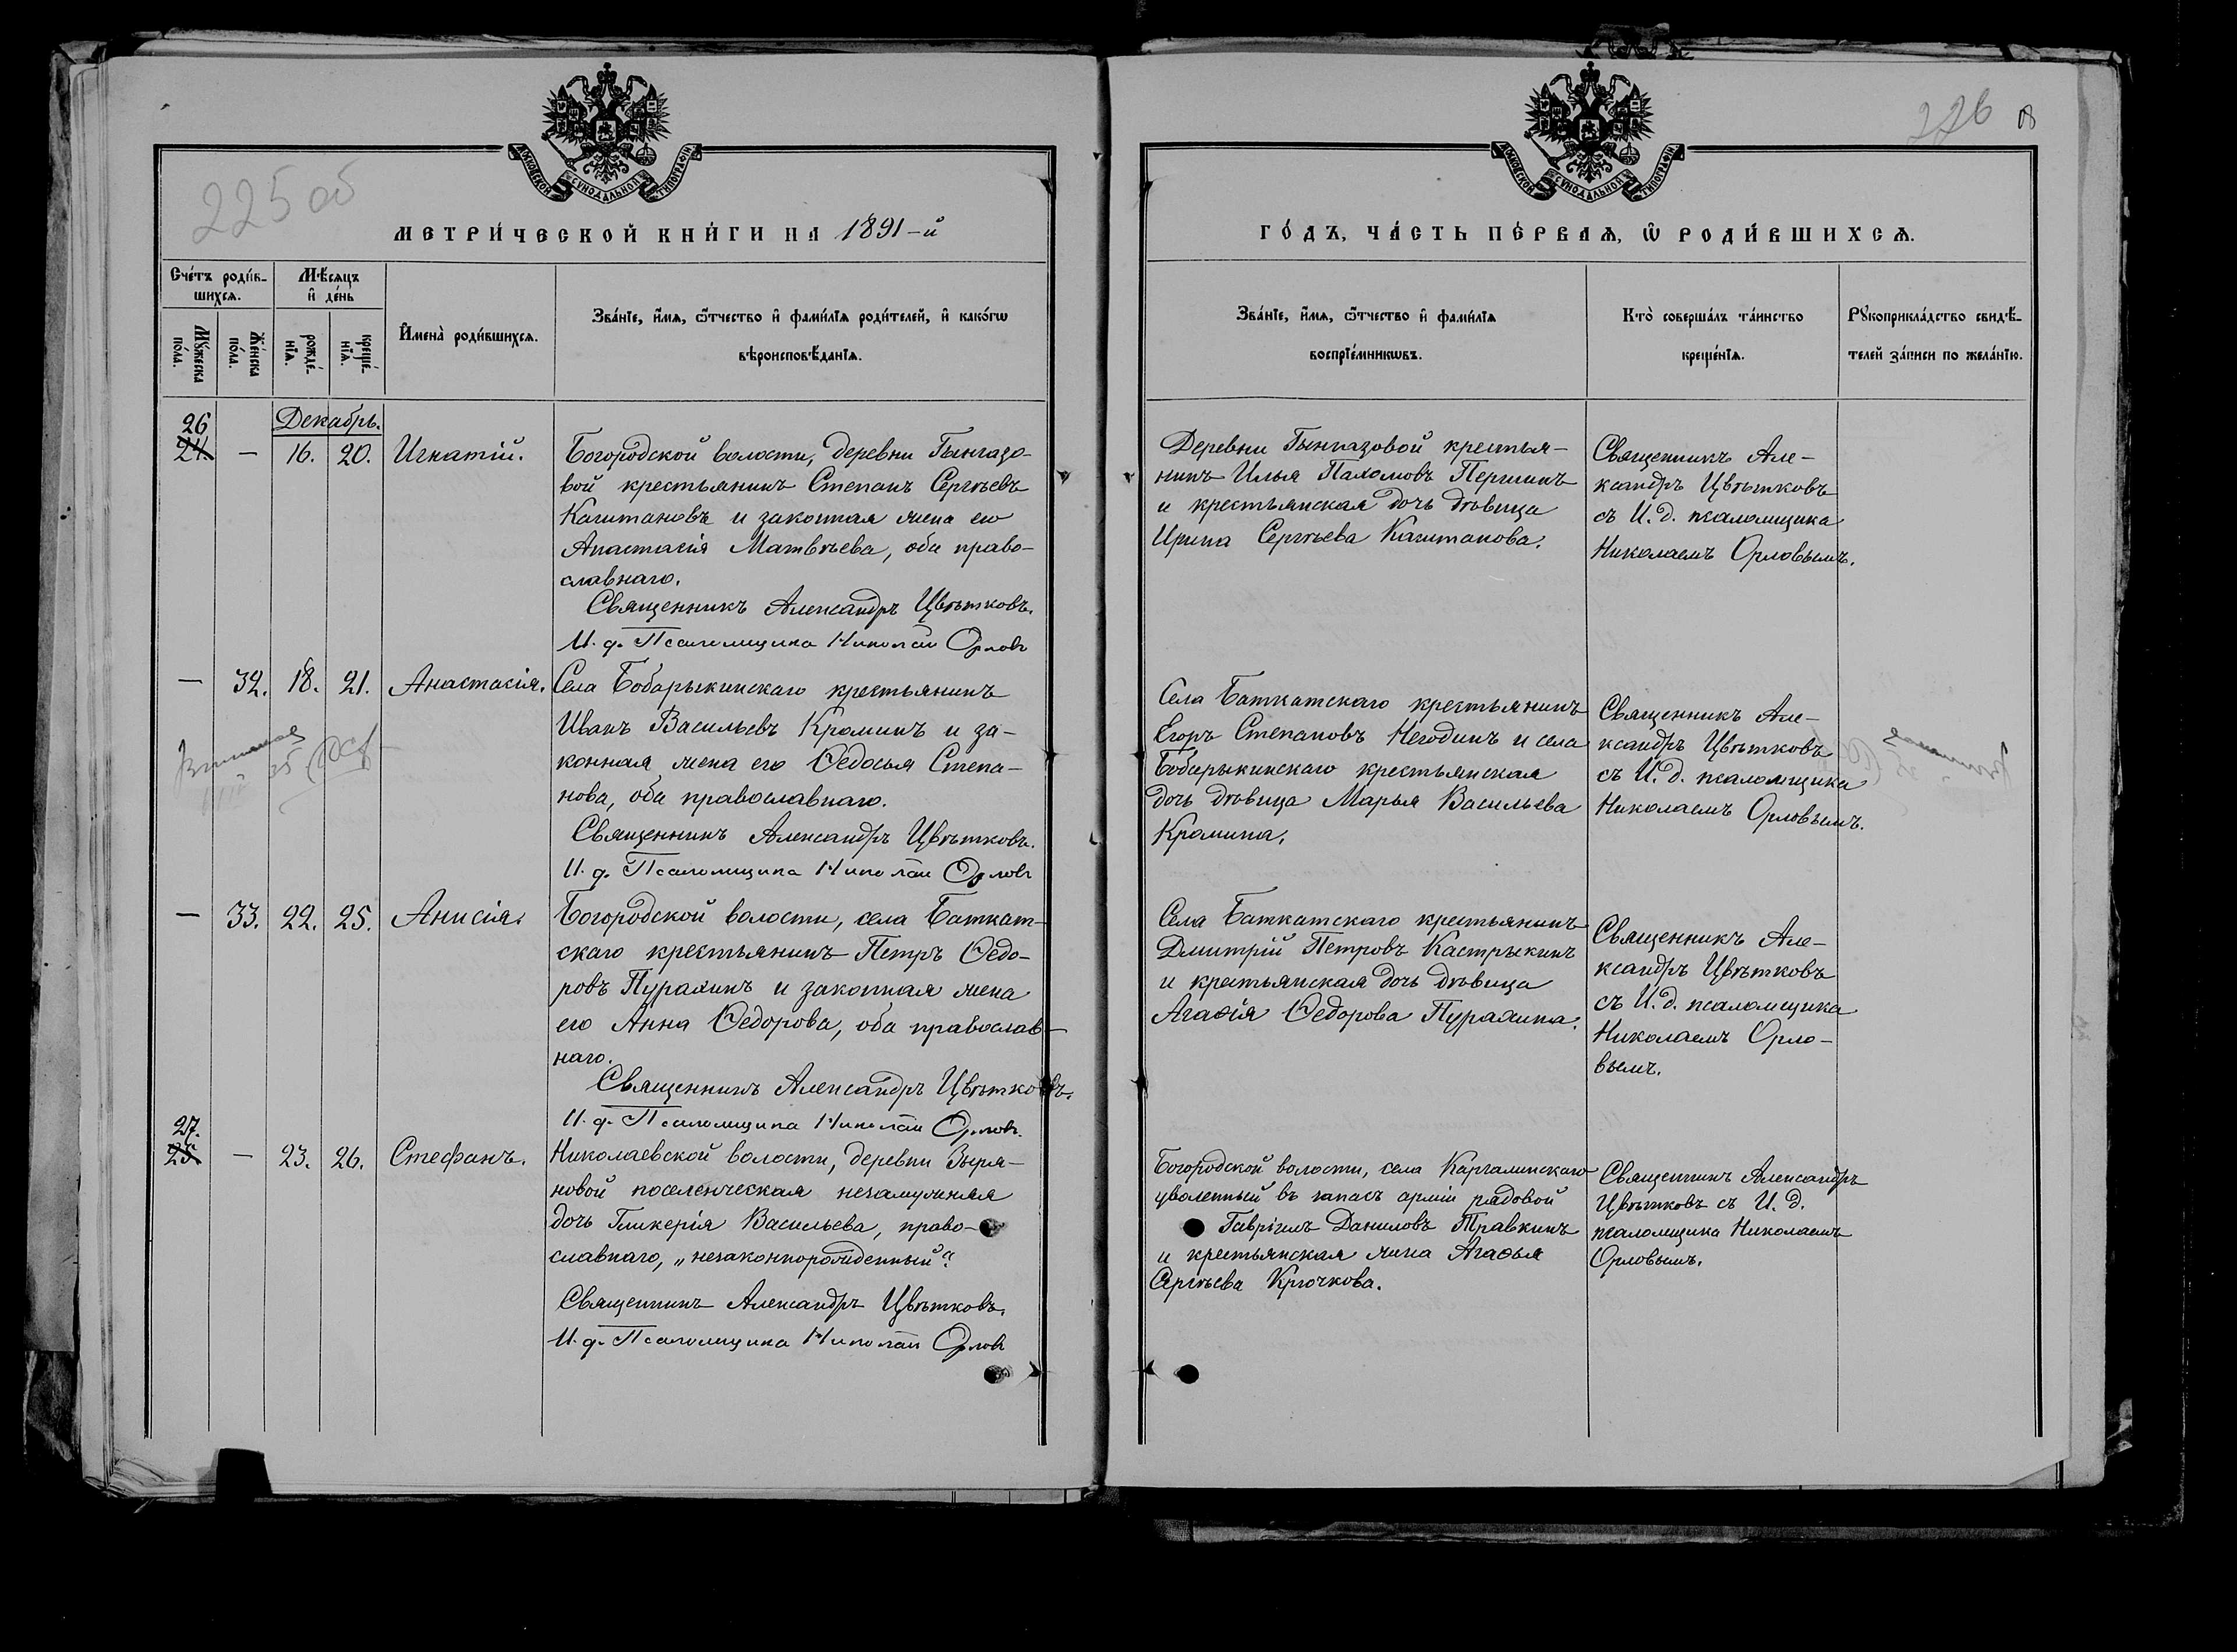 225 об
МОСКОВСКОЙ СѴНОДАЛЬНОЙ ТИПОГРАФІИ
МЕТРИ́ЧЕСКОЙ КНИ́ГИ НА 1891-й
Сче́тъ роди́в-
шихсѧ.
Мѣ́сѧцъ
и҆ де́нь
Мꙋ́жеска
по́ла.
Же́нска
по́ла.
рожде́-
нїѧ.
креще́-
нїѧ.
И҆мена̀ роди́вшихсѧ.
Зва́нїе, и҆́мѧ, ѻ҆́тчество и҆ фами́лїѧ роди́телей, и҆ како́гѡ
вѣроисповѣ́данїѧ.
Декабрь.
26
24. — 16. 20. Игнатій.
Богородской волости, деревни Тынгазо-
вой крестьянинъ Степанъ Сергѣевъ
Каштановъ и законная жена его
Анастасія Матвѣева, оба право-
славнаго.
Священникъ Александръ Цвѣтковъ.
И. д. Псаломщика Николай Орловъ
— 32. 18. 21. Анастасія.
Села Бобарыкинскаго крестьянинъ
Иванъ Васильевъ Кроминъ и за-
конная жена его Ѳедосья Степа-
нова, оба православнаго.
Священникъ Александръ Цвѣтковъ.
И. д. Псаломщика Николай Орловъ
— 33. 22. 25. Анисія.
Богородской волости, села Баткат-
скаго крестьянинъ Петръ Ѳедо-
ровъ Пурахинъ и законная жена
его Анна Ѳедорова, оба православ-
наго.
Священникъ Александръ Цвѣтковъ.
И. д. Псаломщика Николай Орловъ.
27.
25. — 23. 26. Стефанъ.
Николаевской волости, деревни Зыря-
новой поселенческая незамужняя
дочь Гликерія Васильева, право-
славнаго, „незаконнорожденный“.
Священникъ Александръ Цвѣтковъ.
И. д. Псаломщика Николай Орловъ
226
МОСКОВСКОЙ СѴНОДАЛЬНОЙ ТИПОГРАФІИ
ГО́ДЪ, ЧА́СТЬ ПЕ́РВАѦ, Ѡ҆ РОДИ́ВШИХСѦ.
Зва́нїе, и҆́мѧ, ѻ҆́тчество и҆ фами́лїѧ
воспрїе́мникѡвъ.
Кто̀ соверша́лъ та́инство
креще́нїѧ.
Рꙋкоприкла́дство свидѣ́-
телей за́писи по жела́нїю.
Деревни Тынгазовой крестья-
нинъ Илья Пахомовъ Першинъ
и крестьянская дочь дѣвица
Ирина Сергѣева Каштанова.
Священникъ Але-
ксандръ Цвѣтковъ
съ И. д. псаломщика
Николаемъ Орловымъ.
Села Баткатскаго крестьянинъ
Егоръ Степановъ Негодинъ и села
Бобарыкинскаго крестьянская
дочь дѣвица Марья Васильева
Кромина.
Священникъ Але-
ксандръ Цвѣтковъ
съ И. д. псаломщика
Николаемъ Орловымъ.
Села Баткатскаго крестьянинъ
Дмитрій Петровъ Кастрыкинъ
и крестьянская дочь дѣвица
Агаѳія Ѳедорова Пурахина.
Священникъ Але-
ксандръ Цвѣтковъ
съ И. д. псаломщика
Николаемъ Орло-
вымъ.
Богородской волости, села Каргалинскаго
уволенный въ запасъ арміи рядовой
Гавріилъ Даниловъ Травкинъ
и крестьянская жена Агаѳья
Сергѣева Крючкова.
Священникъ Александръ
Цвѣтковъ съ И. д.
псаломщика Николаемъ
Орловымъ.